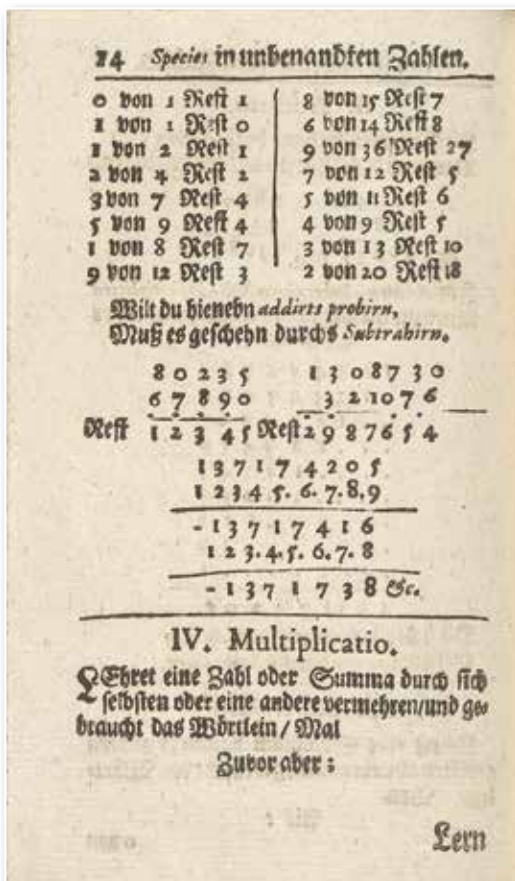 14 Species in unbenandten Zahlen.
0 von 1 Rest 1
1 von 1 Rest 0
1 von 2 Rest 1
2 von 4 Rest 2
3 von 7 Rest 4
5 von 9 Rest 4
1 von 8 Rest 7
9 von 12 Rest 3
8 von 15 Rest 7
6 von 14 Rest 8
9 von 36 Rest 27
7 von 12 Rest 5
5 von 11 Rest 6
4 von 9 Rest 5
3 von 13 Rest 10
2 von 20 Rest 18
Wilt du hienebn addirts probirn,
Muß es geschehn durchs Subtrahirn.
8 0 2 3 5 1 3 0 8 7 3 0
6 7 8 9 0 3 2 1 0 7 6
Rest 1 2 3 4 5 Rest 2 9 8 7 6 5 4
1 3 7 1 7 4 2 0 5
1 2 3 4 5. 6. 7. 8. 9
- 1 3 7 1 7 4 1 6
1 2 3. 4. 5. 6. 7. 8
- 1 3 7 1 7 3 8 &c.
IV. Multiplicatio.
LEhret eine Zahl oder Summa durch sich
selbsten oder eine andere vermehren/und ge-
braucht das Wörtlein / Mal
Zuvor aber:
Lern